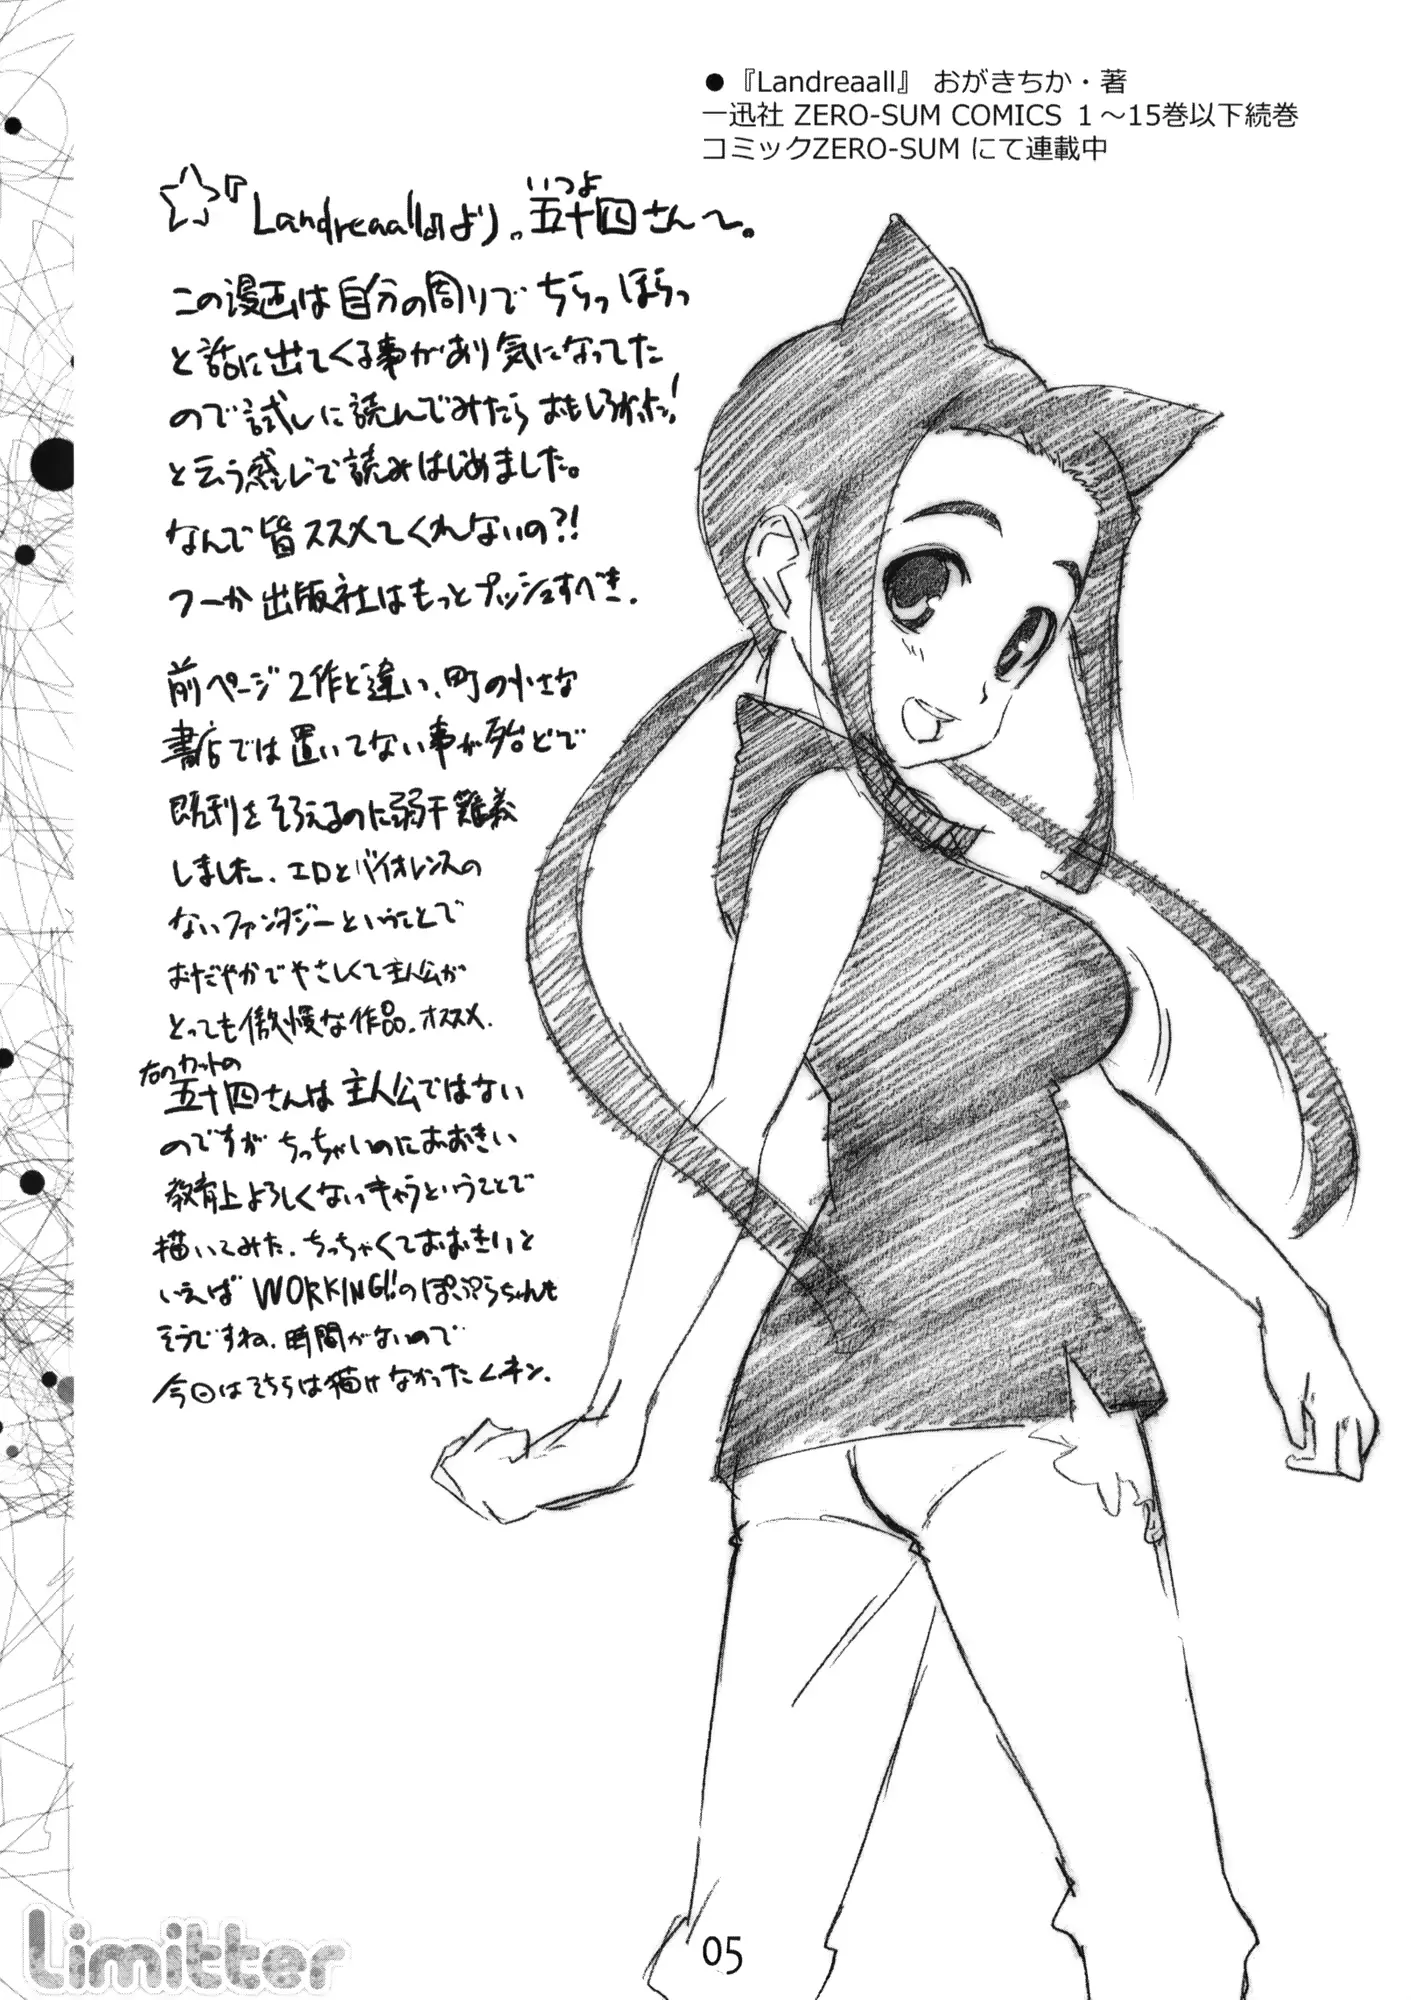 ●『Landreaall』 おがきちか・著
一迅社 ZERO-SUM COMICS 1～15巻以下続巻
コミックZERO-SUM にて連載中
☆『Landreaall』より。五十四さん～。
いつよ
この漫画は自分の周りでちらっほらっ
と話に出てくる事があり気になってた
ので試しに読んでみたらおもしろかった!
と云う感じで読みはじめました。
なんで皆ススメてくれないの?!
つーか出版社はもっとプッシュすべき.
前ページ2作と違い、町の小さな
書店では置いてない事が殆どで
既刊をそろえるのに弱干難義
しました、エロとバイオレンスの
ないファンタジーということで
おだやかでやさしくて主人公が
とっても傲慢な作品。オススメ.
右のカットの
五十四さんは主人公ではない
のですがちっちゃいのにおおきい
教育上よろしくないキャラということで
描いてみた、ちっちゃくておおきいと
いえばWORKING!!のぽぷらちゃんも
そうですね、時間がないので
今回はそちらは描けなかったムネン.
Limitter
05